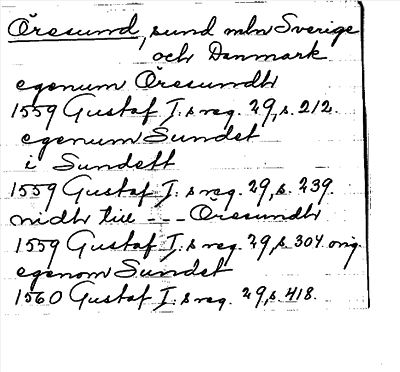 Öresund, sund mln Sverige
och Danmark
egenum Öresundh
1559 Gustaf I:s reg. 29, s. 212.
egenum Sundet
i Sundett
1559 Gustaf I:s reg. 29, s. 239.
nidh till --- Öresundh
1559 Gustaf I:s reg. 29, s. 304 orig.
egenom Sundet
1560 Gustaf I:s reg. 29, s. 418.